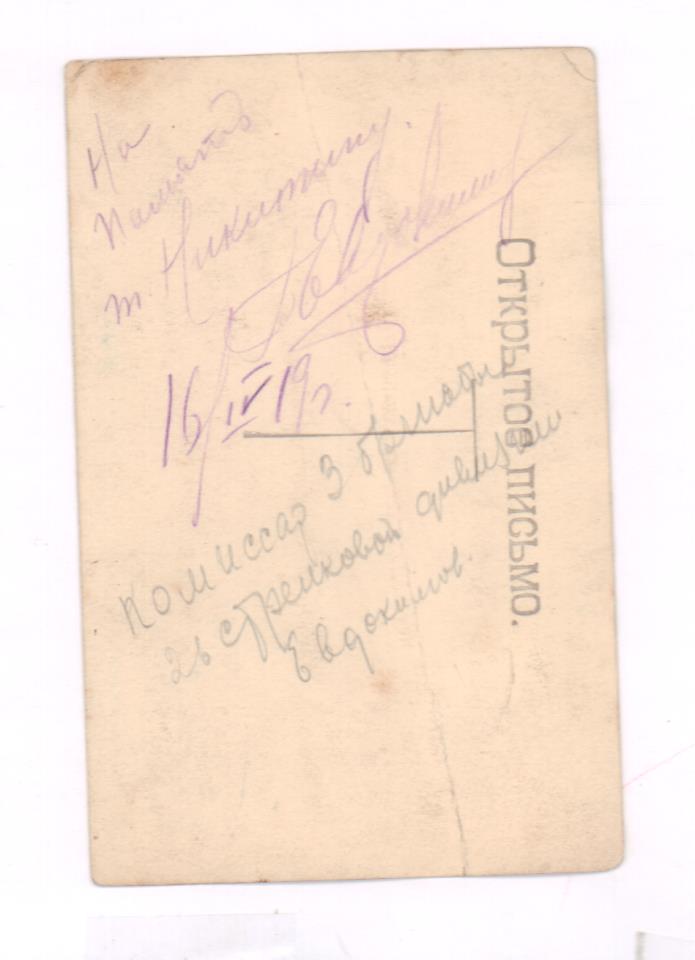 На
память
т. Никитину.
Евдокимов
16/IV 19 г.
Комиссар 3 бригады
26 стрелковой дивизии
Евдокимов.
Открытое письмо.